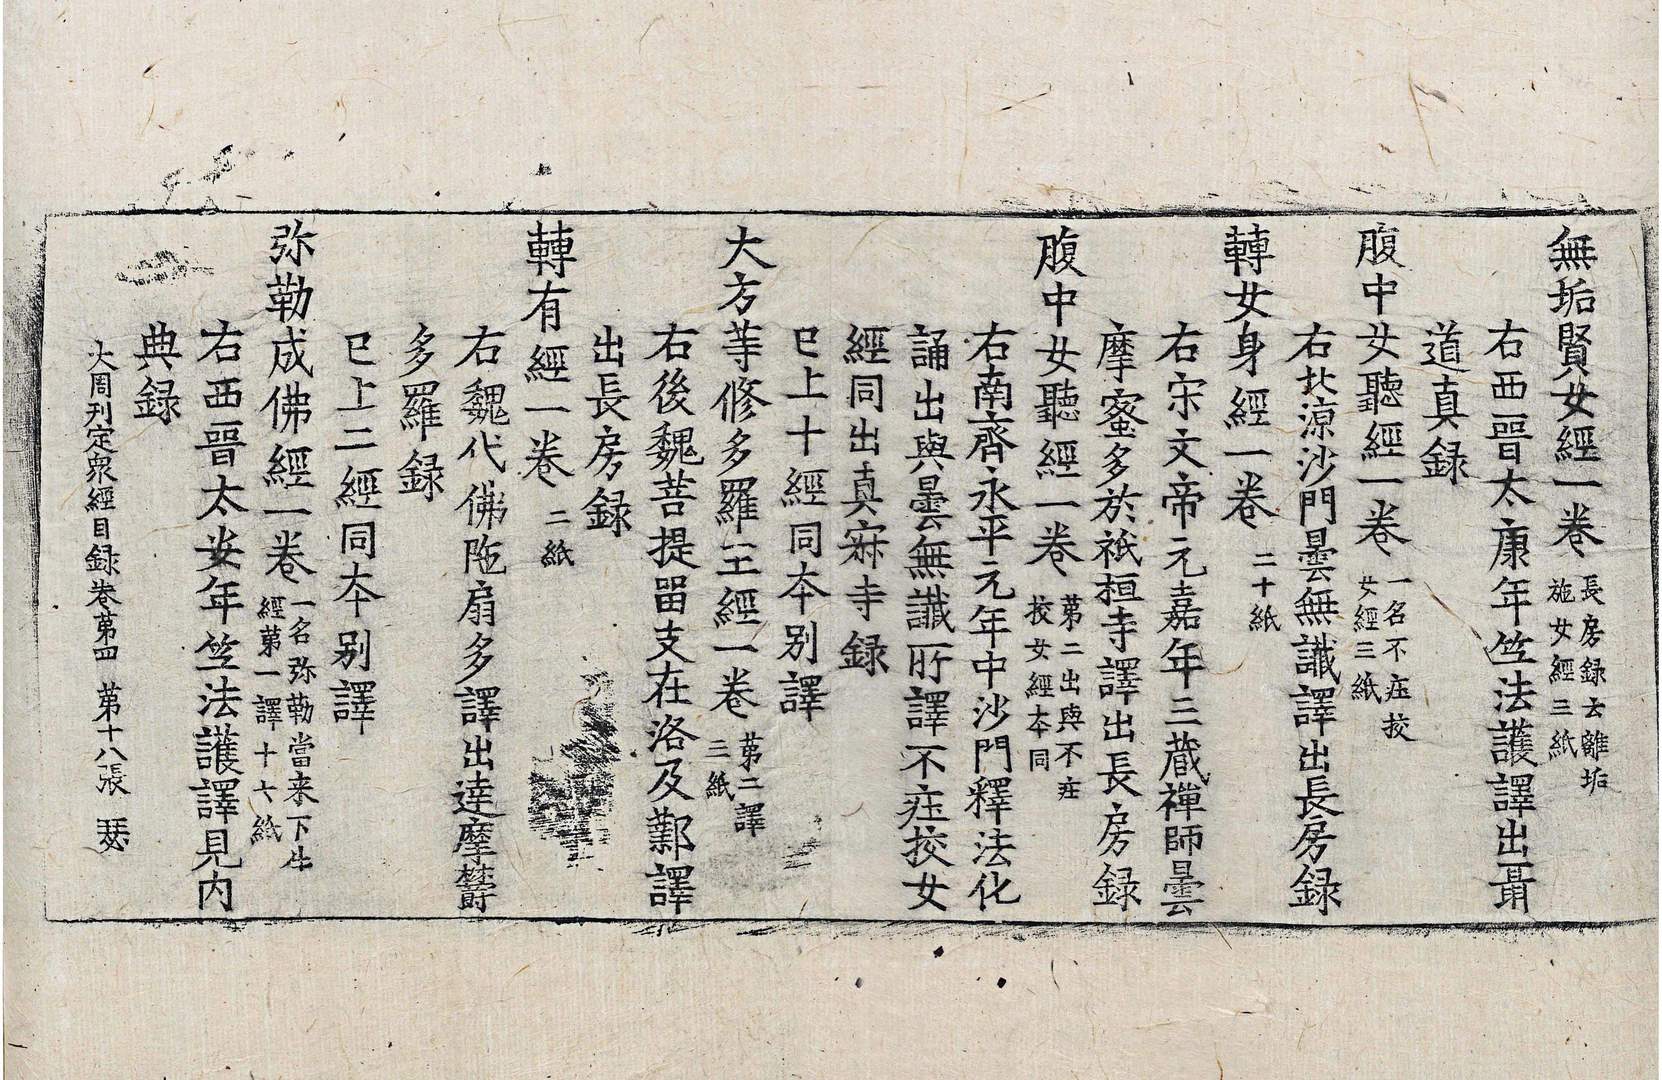 無垢賢女經一卷 長房録云離垢施女經三紙
右西晉太康年竺法護譯出聶
道真録
腹中女聽經一卷 一名不疘挍女經三紙
右北涼沙門曇無讖譯出長房録
轉女身經一卷 二十紙
右宋文帝元嘉年三藏禪師曇
摩蜜多於祇桓寺譯出長房録
腹中女聽經一卷 苐二出與不疘挍女經夲同
右南齊永平元年中沙門釋法化
誦出與曇無讖所譯不疘挍女
經同出真寂寺録
已上十經同夲别譯
大方䓁修多羅王經一卷 苐二譯三紙
右後魏菩提留支在洛及鄴譯
出長房録
轉有經一卷 二紙
右魏代佛陁扇多譯出達摩欝
多羅録
已上二經同夲别譯
弥勒成佛經一卷 一名弥勒當来下生經苐一譯十六紙
右西晉太安年竺法護譯見内
典録
大周刊定衆經目録卷苐四 苐十八張 瑟